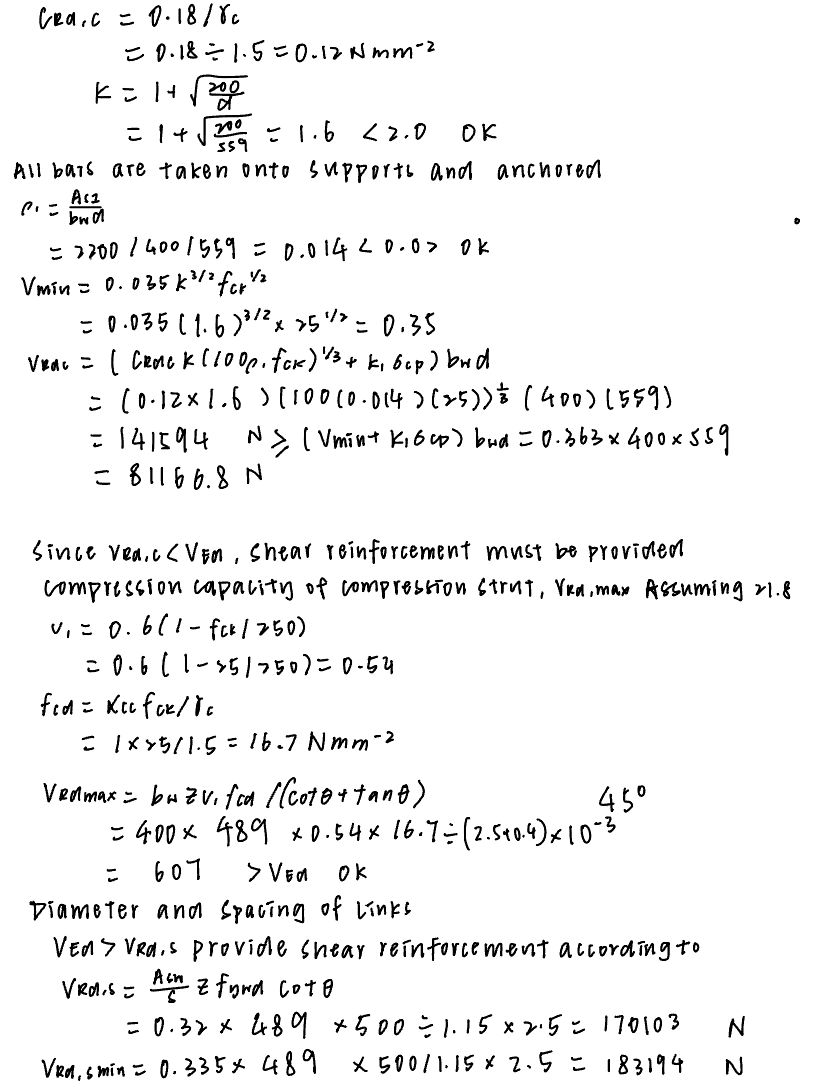 CRd,c = 0.18/γc
= 0.18 ÷ 1.5 = 0.12 N mm⁻²
K = 1 + √(200/d)
= 1 + √(200/559) = 1.6 < 2.0 OK
All bars are taken onto supports and anchored
ρ₁ = As1/bwd
= 2200 / 400 / 559 = 0.014 < 0.02 OK
Vmin = 0.035 k^3/2 fck^1/2
= 0.035 (1.6)^3/2 × 25^1/2 = 0.35
VRdc = ( CRdc K (100ρ₁ fck)^1/3 + k₁ 6cp) bwd
= (0.12 × 1.6 ) (100 (0.014 ) (25))^1/3 (400) (559)
= 141594 N ≥ ( Vmin + K₁6cp) bwd = 0.363 × 400 × 559
= 81166.8 N
Since VRd,c < VEd , shear reinforcement must be provided
compression capacity of compression strut, VRd,max Assuming 21.8
v₁ = 0.6 (1 - fck / 250)
= 0.6 ( 1 - 25 / 250) = 0.54
fcd = αcc fck / γc
= 1 × 25 / 1.5 = 16.7 N mm⁻²
VRdmax = bw z v₁ fcd / (cotθ + tanθ) 45°
= 400 × 489 × 0.54 × 16.7 ÷ (2.5+0.4) × 10⁻³
= 607 > VEd OK
Diameter and spacing of links
VEd > VRd,s provide shear reinforcement according to
VRd,s = Asw/s z fywd cotθ
= 0.32 × 489 × 500 ÷ 1.15 × 2.5 = 170103 N
VRd,smin = 0.335 × 489 × 500 / 1.15 × 2.5 = 183194 N